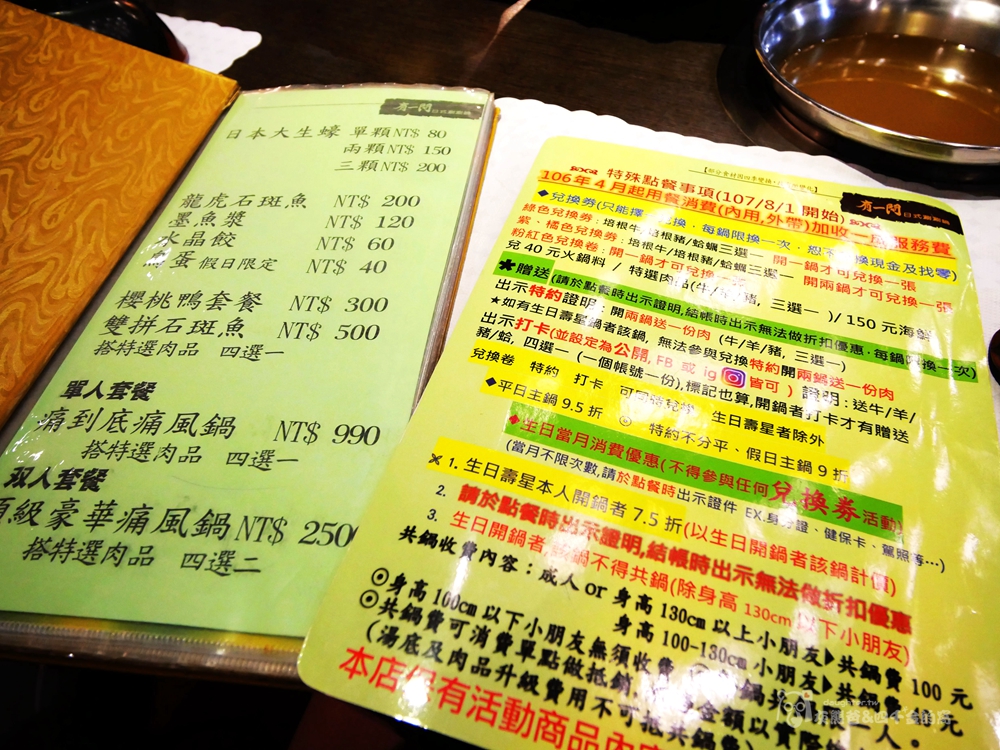 有一閒
日本大生蠔 單顆NT$ 80
兩顆NT$ 150
三顆NT$ 200
龍虎石斑魚 NT$ 200
墨魚漿 NT$ 120
水晶餃 NT$ 60
蛋 假日限定 NT$ 40
櫻桃鴨套餐 NT$ 300
雙拼石斑魚 NT$ 500
搭特選肉品 四選一
單人套餐
痛到底痛風鍋 NT$ 990
搭特選肉品 四選一
双人套餐
頂級豪華痛風鍋 NT$ 2500
搭特選肉品 四選二
有一閒
特殊點餐事項(107/8/1 開始)
106年4月起用餐消費(內用,外帶)加收一成服務費
◆兌換券(只能擇 換,每鍋限換一次,恕 換現金及找零)
綠色兌換券:培根牛/培根豬/蛤蠣三選一 開一鍋才可兌換一張
紫、橘色兌換券:培根牛/培根豬/蛤蠣三選一 開兩鍋才可兌換一張
粉紅色兌換卷:開一鍋才可兌換一
兌 40 元火鍋料 / 特選肉品(牛/羊/豬, 三選一 )/ 150 元海鮮
✱贈送(請於點餐時出示證明,結帳時出示無法做折扣優惠,每鍋 換一次)
出示特約證明:開兩鍋送一份肉 (牛/羊/豬, 三選一)
★如有生日壽星者該鍋, 無法參與兌換特約開兩鍋送一份肉
出示打卡(並設定為公開, FB 或 ig 皆可 ) 證明:送牛/羊/
豬/蛤, 四選一 (一個帳號一份),標記也算,開鍋者打卡才有贈送
兌換卷 特約 打卡 可 生日壽星者除外
◆平日主鍋 9.5 折 特約不分平、假日主鍋 9 折
◆生日當月消費優惠(不得參與任何兌換券活動)
(當月不限次數,請於點餐時出示證件 EX.身 證、健保卡、駕照等…)
1. 生日壽星本人開鍋者 7.5 折(以生日開鍋者該鍋計價)
2. 請於點餐時出示證明,結帳時出示無法做折扣優惠
3. 生日開鍋者,該鍋不得共鍋(除身高 130cm 以下小朋友)
共鍋收費內容:成人 or 身高 130cm 以上小朋友▶共鍋費 100 元
身高 100-130cm 小朋友▶共鍋費 元
◎身高 100cm 以下小朋友無須收費 一人。
◎共鍋費可消費單點做抵銷 金額以實際
(湯底及肉品升級費用不可抵共鍋費)
本店保有活動商品內容